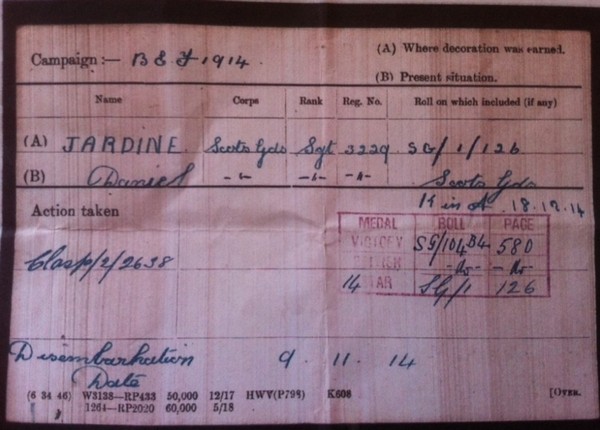 Campaign :— B E F 1914.
(A) Where decoration was earned.
(B) Present situation.
Name Corps Rank Reg. No. Roll on which included (if any)
(A) JARDINE Scots Gds Sgt 3229 SG/1/126
(B) Daniel -"- -"- -"- Scots Gds
K in A 18.12.14
Action taken
MEDAL ROLL PAGE
VICTORY SG/104B4 580
BRITISH -do- -do-
14 STAR SG/1 126
Clasp/2/2638
Disembarkation Date 9 . 11 . 14
(6 34 46) W3138—RP433 50,000 12/17 HWV(P798) K608 [OVER.
1264—RP2020 60,000 5/18